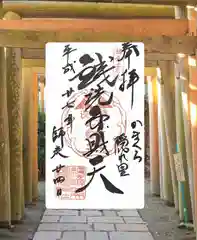 奉拝
かまくら
隠れ里
銭洗弁財天
平成廿七年
師走
廿四日